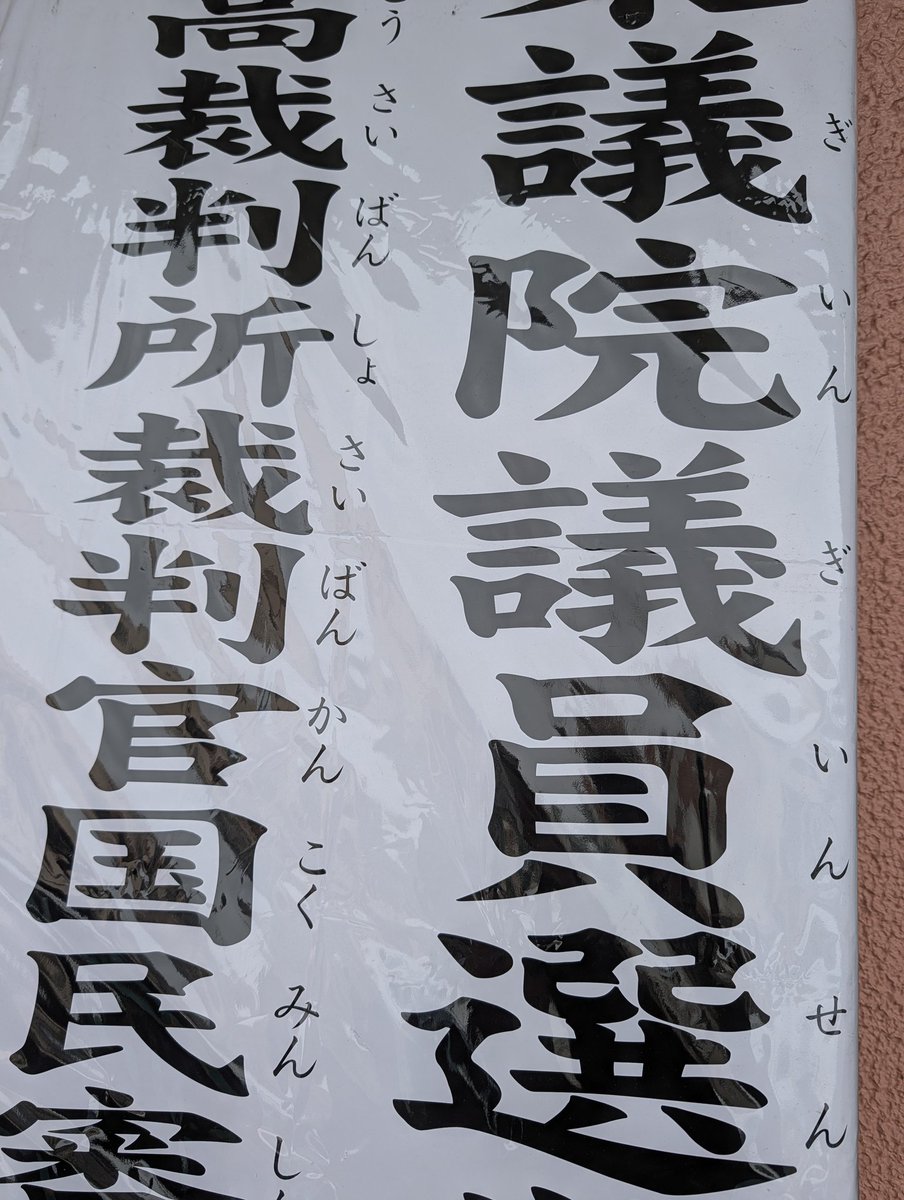 ぎいんぎいんせん
議院議員選
うさいばんしょさいばんかんこくみんし
高裁判所裁判官国民審